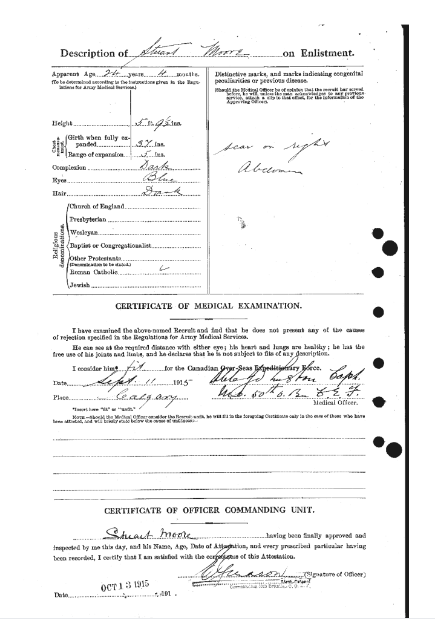 Description of Stuart Moore on Enlistment.
Apparent Age 24 years 4 months.
(To be determined according to the instructions given in the Regulations for Army Medical Services.)
Height 5 ft. 9½ ins.
Chest Measurement
Girth when fully expanded 37 ins.
Range of expansion 5 ins.
Complexion Dark
Eyes Blue
Hair Dark
Religious denominations.
Church of England
Presbyterian
Wesleyan
Baptist or Congregationalist
Other Protestants
(Denomination to be stated.)
Roman Catholic ✓
Jewish
Distinctive marks, and marks indicating congenital
peculiarities or previous disease.
(Should the Medical Officer be of opinion that the recruit has served
before, he will, unless the man acknowledges to any previous
service, attach a slip to that effect, for the information of the
Approving Officer).
scar on right
Abdomen
CERTIFICATE OF MEDICAL EXAMINATION.
I have examined the above-named Recruit and find that he does not present any of the causes
of rejection specified in the Regulations for Army Medical Services.
He can see at the required distance with either eye; his heart and lungs are healthy; he has the
free use of his joints and limbs, and he declares that he is not subject to fits of any description.
I consider him* fit for the Canadian Over-Seas Expeditionary Force.
Date Sept. 11 1915 Capt.
Place Calgary M.O. 50th Bn C.E.F.
Medical Officer.
*Insert here "fit" or "unfit."
NOTE.—Should the Medical Officer consider the Recruit unfit, he will fill in the foregoing Certificate only in the case of those who have
been attested, and will briefly state below the cause of unfitness:—
CERTIFICATE OF OFFICER COMMANDING UNIT.
Stuart Moore having been finally approved and
inspected by me this day, and his Name, Age, Date of Attestation, and every prescribed particular having
been recorded, I certify that I am satisfied with the correctness of this Attestation.
(Signature of Officer)
Date OCT 13 1915 191 .